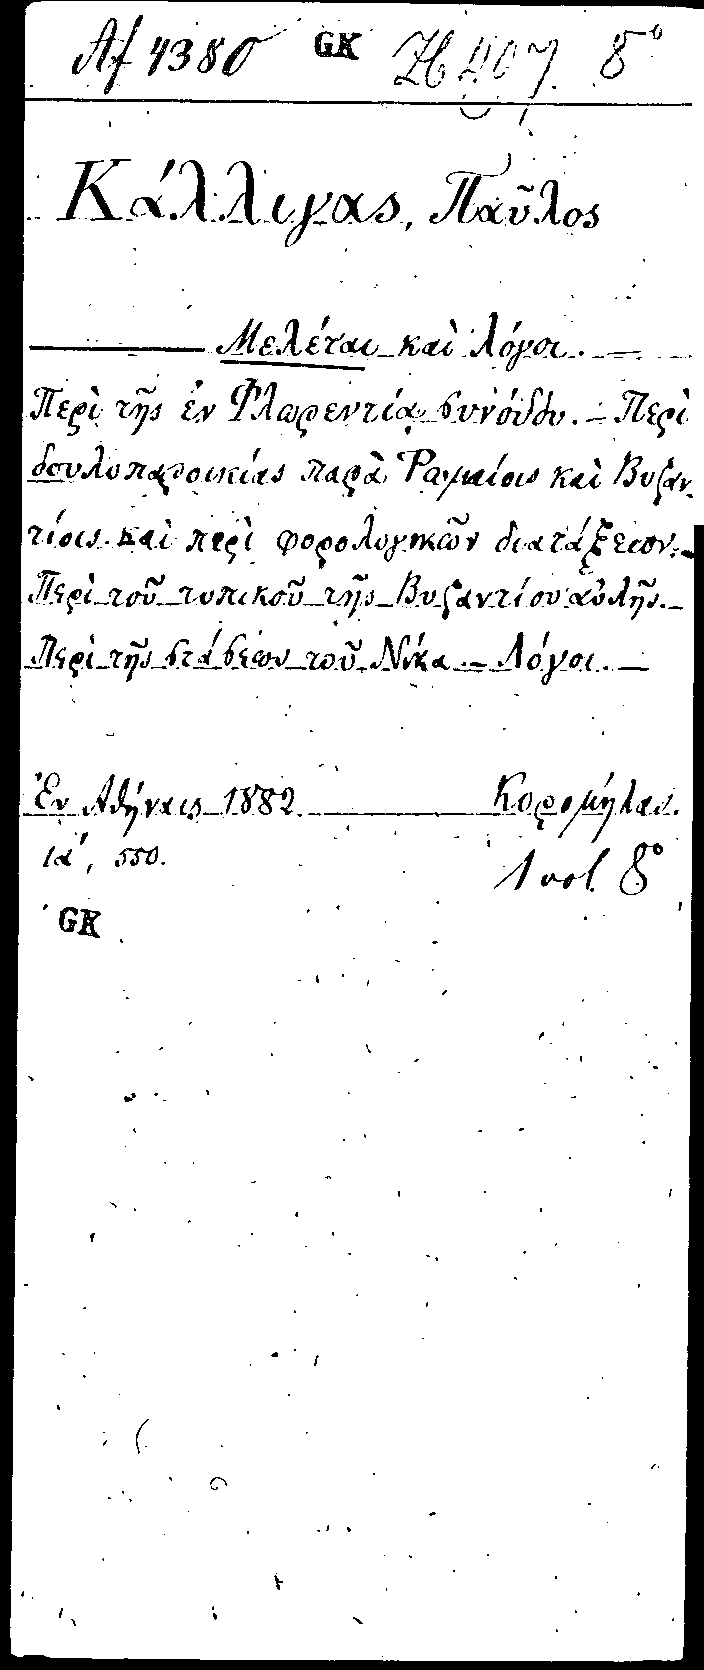 Af 4380 GK H 407. 8°
Κάλλιγας, Παῦλος
——— Μελέται καὶ λόγοι. —
Περὶ τῆς ἐν Φλωρεντίᾳ συνόδου. — Περὶ
δουλοπαροικίας παρὰ Ῥωμαίοις καὶ Βυζαν-
τίοις καὶ περὶ φορολογικῶν διατάξεων. —
Περὶ τοῦ τυπικοῦ τῆς Βυζαντίου αὐλῆς. —
Περὶ τῆς στάσεως τοῦ Νίκα — Λόγοι. —
Ἐν Ἀθήναις 1882. Κορομήλας.
ια΄, 550. 1 vol. 8°
GK